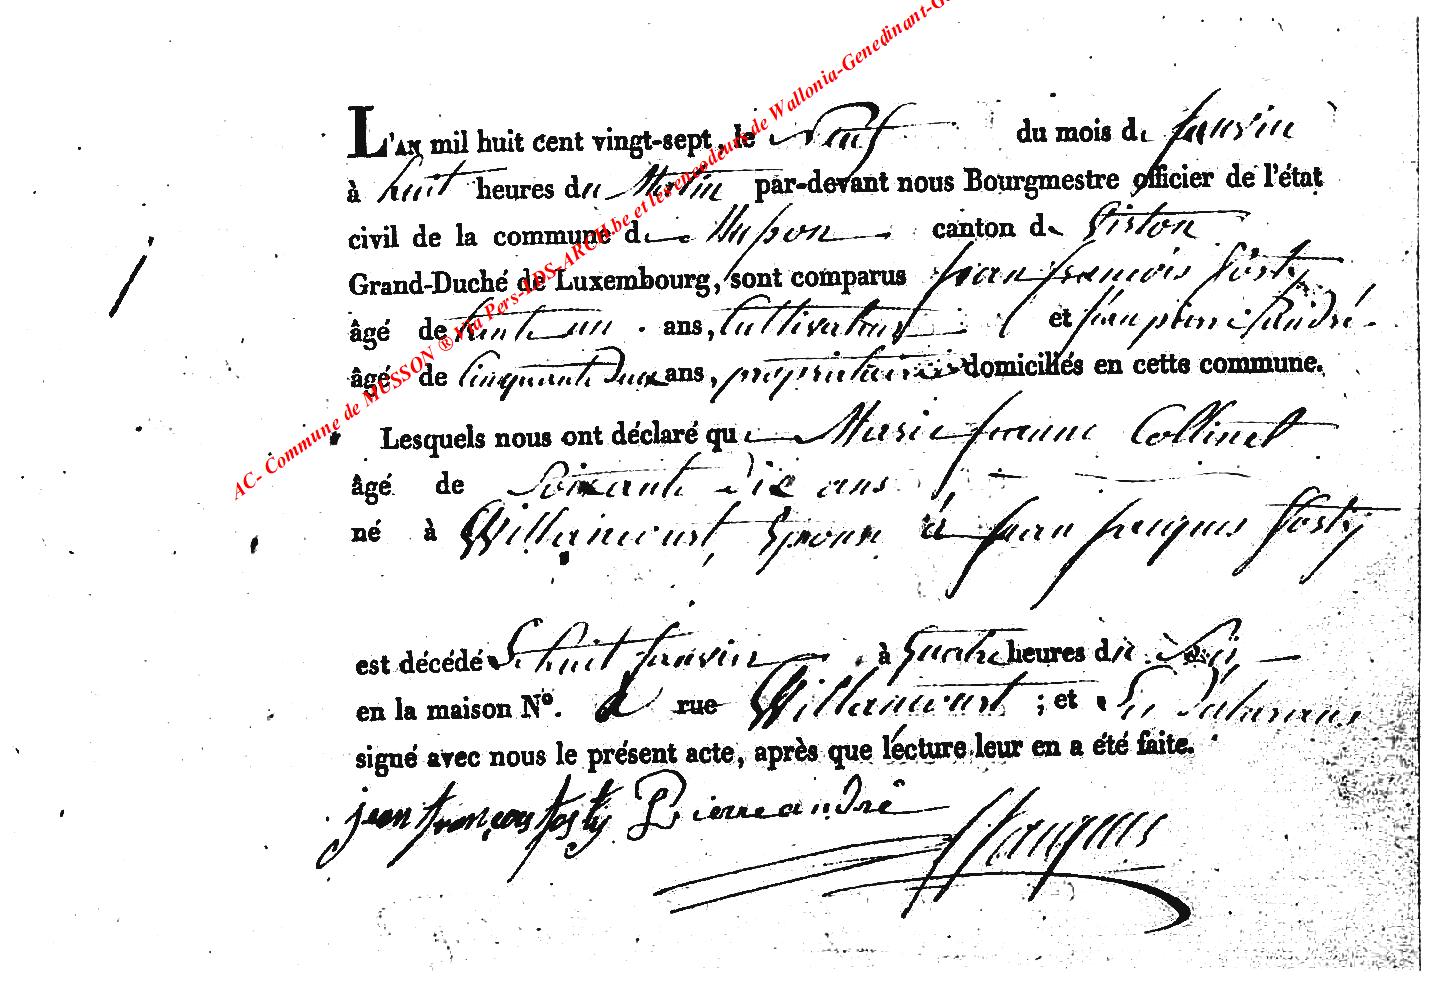 L'AN mil huit cent vingt-sept, le Neuf du mois de Janvier
à huit heures du Matin par-devant nous Bourgmestre officier de l'état
civil de la commune de Musson canton de Virton
Grand-Duché de Luxembourg, sont comparus Jean françois Josty
âgé de trente un ans, Cultivateur et Jean pierre andré
âgé de Cinquante Deux ans, propriétaire domiciliés en cette commune.
Lesquels nous ont déclaré que Marie Jeanne Collinet
âgé de Soixante Dix ans
né à Willancourt, Epouse à Jean Jacques Josty
est décédé le huit Janvier à quatre heures du Soir
en la maison N°. rue Willancourt ; et les Déclarans
signé avec nous le présent acte, après que lecture leur en a été faite.
jean françois josty Pierre andré
AC- Commune de MUSSON ® Via Pers-LDS-ARCH.be et les encodeurs de Wallonia-Genedinant-G